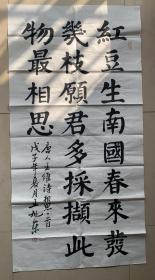 紅豆生南國春來發
幾枝願君多採擷此
物最相思
唐人王維詩相思一首
戊子年夏月王旭東